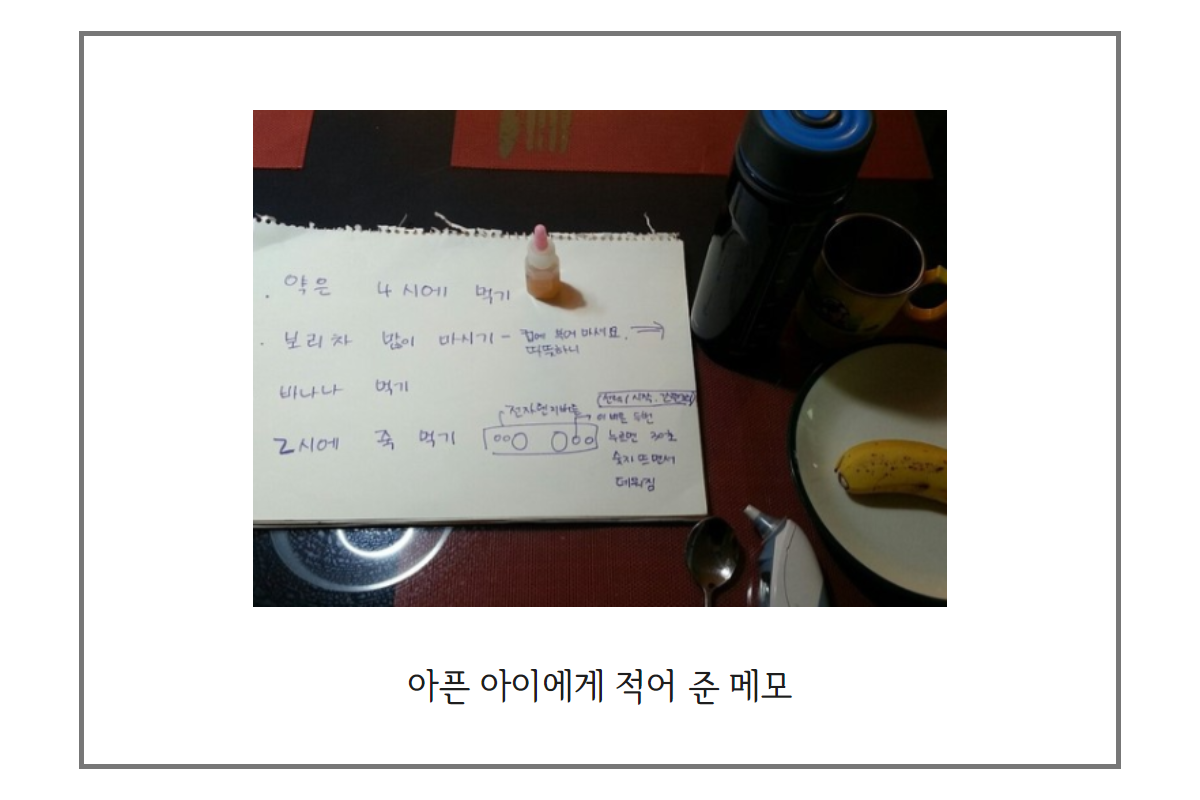 · 약은 4시에 먹기
· 보리차 많이 마시기 - 컵에 부어 마셔요.
따뜻하니
바나나 먹기
2시에 죽 먹기
전자렌지버튼
이 버튼 두번
누르면 30초
숫자 뜨면서
데워짐
아픈 아이에게 적어 준 메모